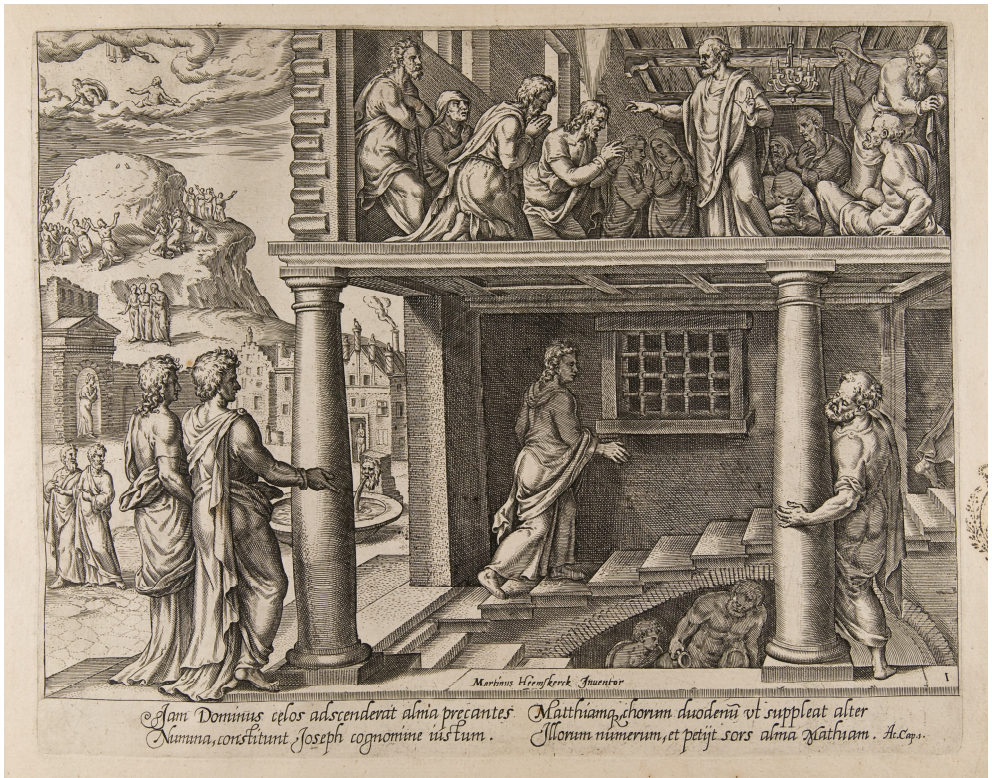 Martinus Heemskerck Inventor
1
Jam Dominus celos adscenderat alma precantes
Numina, constitunt Joseph cognomine iustum.
Matthiamq, chorum duodenū vt suppleat alter
Illorum numerum, et petijt sors alma Mathiam. At. Cap. 1.